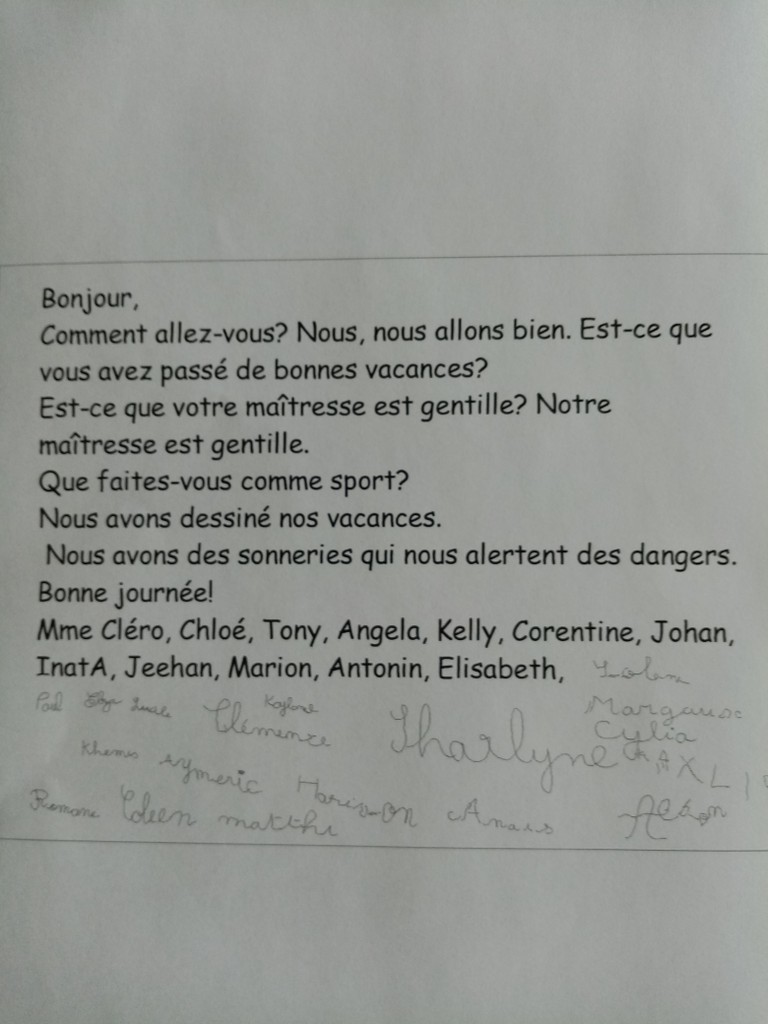 Bonjour,
Comment allez-vous? Nous, nous allons bien. Est-ce que
vous avez passé de bonnes vacances?
Est-ce que votre maîtresse est gentille? Notre
maîtresse est gentille.
Que faites-vous comme sport?
Nous avons dessiné nos vacances.
Nous avons des sonneries qui nous alertent des dangers.
Bonne journée!
Mme Cléro, Chloé, Tony, Angela, Kelly, Corentine, Johan,
InatA, Jeehan, Marion, Antonin, Elisabeth,
Paul Clémence Tharlyne Cylia
Khemis aymeric
matthi Anais